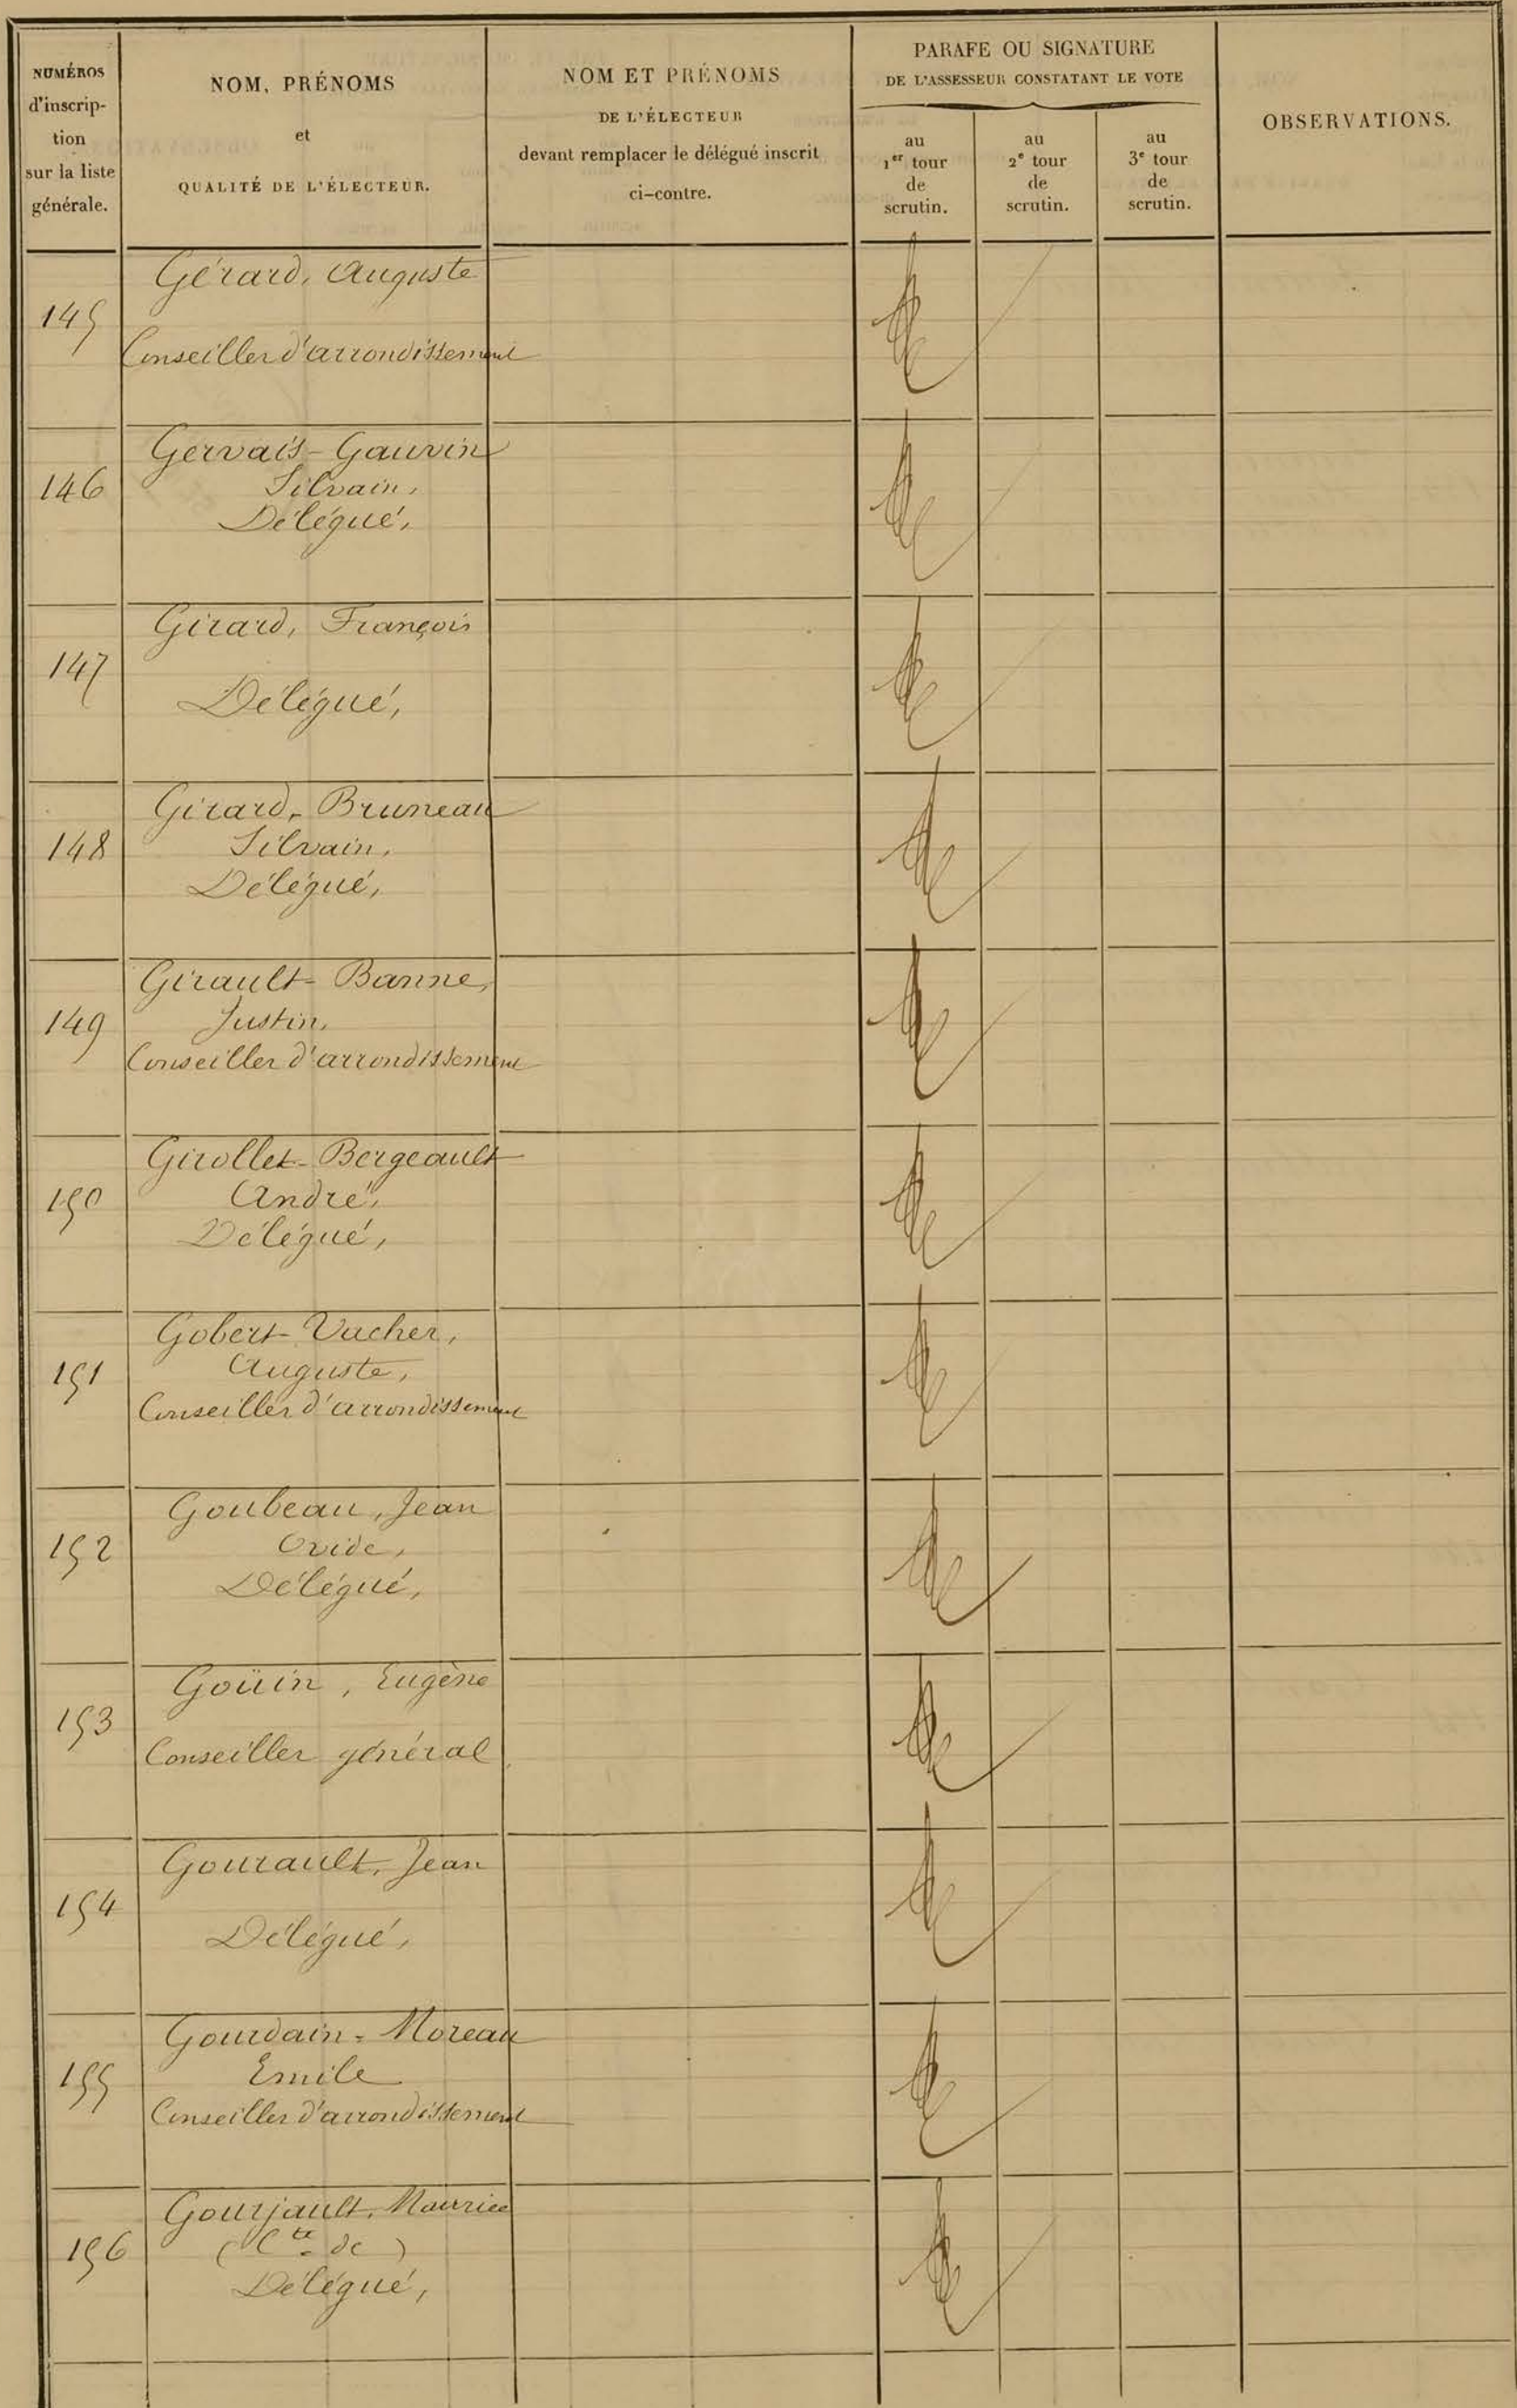 NUMÉROS
d'inscrip-
tion
sur la liste
générale.
NOM, PRÉNOMS
et
QUALITÉ DE L'ÉLECTEUR.
NOM ET PRÉNOMS
DE L'ÉLECTEUR
devant remplacer le délégué inscrit
ci-contre.
PARAFE OU SIGNATURE
DE L'ASSESSEUR CONSTATANT LE VOTE
au
1er tour
de
scrutin.
au
2e tour
de
scrutin.
au
3e tour
de
scrutin.
OBSERVATIONS.
Gérard, Auguste
145
Conseiller d'arrondissement
Gervais-Gauvin
146 Silvain,
Délégué,
Girard, François
147
Délégué,
Girard-Bruneau
148 Silvain,
Délégué,
Girault-Banne,
149 Justin,
Conseiller d'arrondissement
Girollet-Bergeault
150 André,
Délégué,
Gobert-Vacher,
151 Auguste,
Conseiller d'arrondissement
Goubeau, Jean
152 Ovide,
Délégué,
Goüin, Eugène
153
Conseiller général
Gourault, Jean
154
Délégué,
Gourdain-Moreau
155 Emile
Conseiller d'arrondissement
Gourjault, Maurice
156 (Cte de)
Délégué,